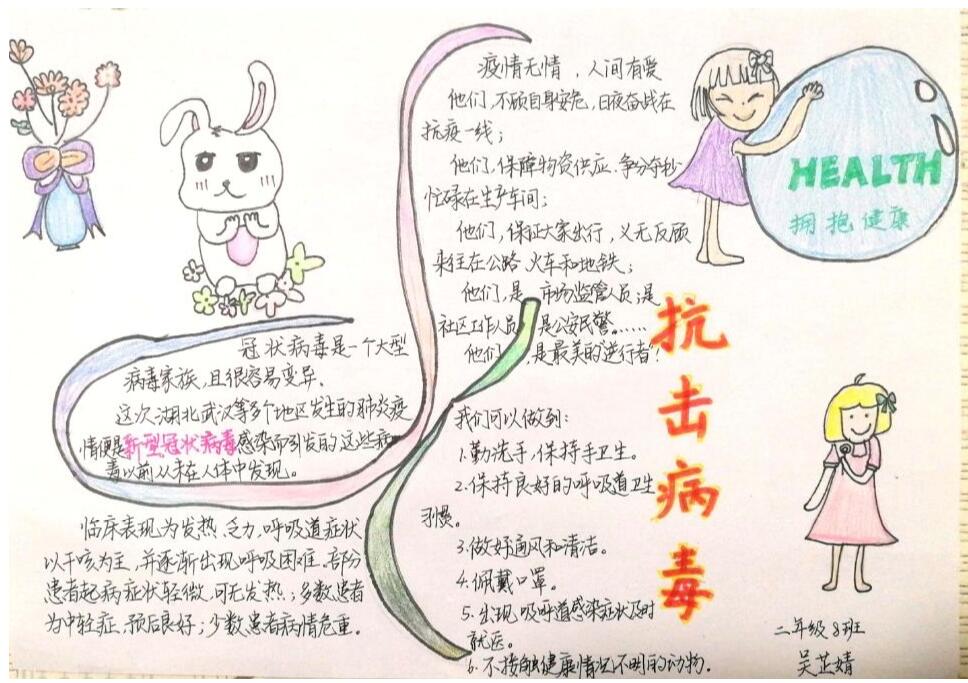 疫情无情,人间有爱
他们,不顾自身安危,日夜奋战在
抗疫一线;
他们,保障物资供应、争分夺秒
忙碌在生产车间;
他们,保证大家出行,义无反顾
来往在公路、火车和地铁;
他们,是市场监管人员,是
社区工作人员,是公安民警……
他们,是最美的逆行者!
HEALTH
拥抱健康
抗击病毒
冠状病毒是一个大型
病毒家族,且很容易变异、
这次湖北武汉等多个地区发生的肺炎疫
情便是新型冠状病毒感染而引发的这些病
毒以前从未在人体中发现。
临床表现为发热、乏力,呼吸道症状
以干咳为主,并逐渐出现呼吸困难、部分
患者起病症状轻微,可无发热;多数患者
为中轻症,预后良好;少数患者病情危重。
我们可以做到:
1.勤洗手,保持手卫生。
2.保持良好的呼吸道卫生
习惯。
3.做好通风和清洁。
4.佩戴口罩。
5.出现呼吸道感染症状及时
就医。
6.不接触健康情况不明的动物.
二年级8班
吴芷婧